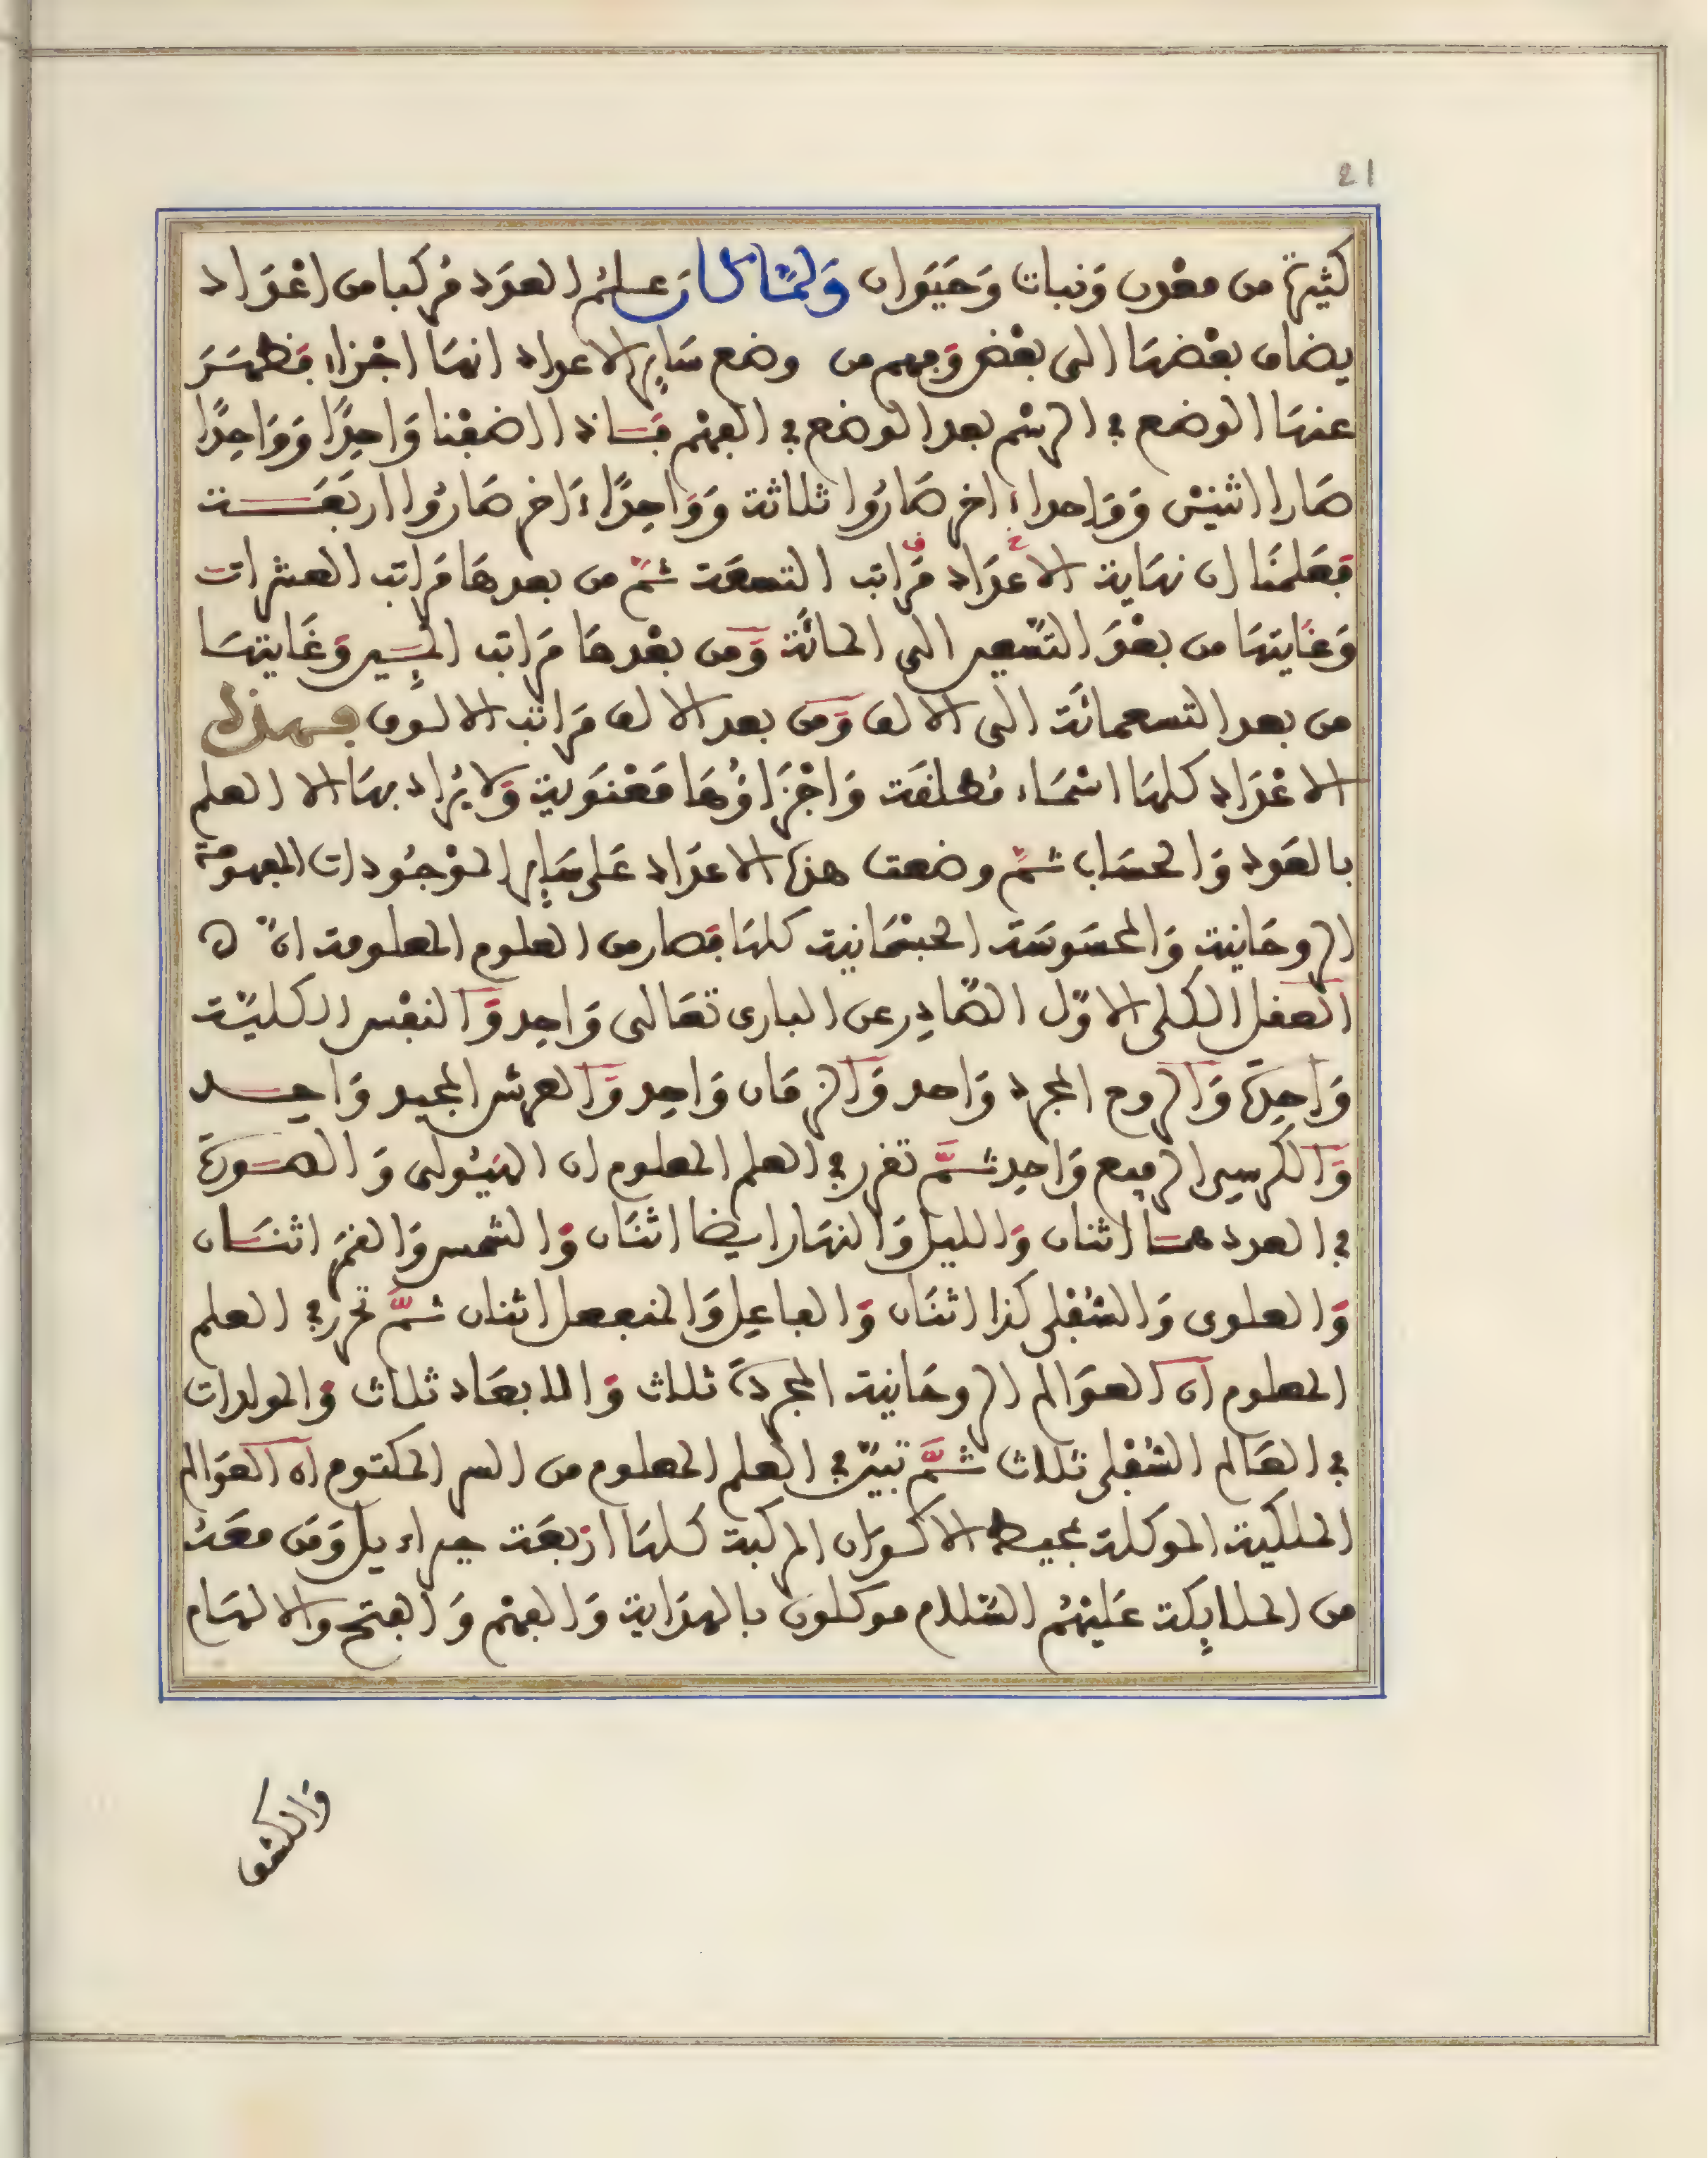 21
كثيرة من معدن وَنبات وَحَيَوان وَلمَّا كان علمُ العدَد مُركبا من اعْدَاد
يضاف بعْضهَا الى بعْض وَفهم من وضع سَايِر الاعداد انهَا اجْزاء فظهَرَ
عنهَا الوضع في الرسْم بعد الوضع في الفهْم فَـانا اذا اضفْنا وَاحِدًا وَوَاحِدًا
صَارا اثنيْن وَوَاحدا ءاخر صَارُوا ثلاثة وَوَاحِدًا ءَاخر صَارُوا اربَعَـة
فعَلمنَا ان نهَاية الاعدَاد مَرَاتب التسعَة ثمَّ من بعدهَا مَرَاتب العشرات
وَغايتهَا من بعْد التسْعين الى المائَة وَمن بعْدهَا مَرَاتب المئِين وَغَايتهَا
من بعد التسعمائَة الى الالف وَمن بعد الالف مَرَاتب الالوف فهذه
الاعْدَاد كلهَا اسْمَاء مُطلقَة وَاجْزَاؤُهَا مَعْنَوية وَلا يُرَاد بهَا الا العلم
بالعدد وَالحسَاب ثمَّ وضعت هذه الاعدَاد عَلى سَايِر الموْجُودات المفهومة
الروحَانية وَالمحسَوسَة الجسْمَانية كلهَا فصَار من العلوم المعلومة انَّ
العقل الكلى الاوَّل الصَّادِر عن البارى تعَالى وَاحِد وَالنفْس الكليَّة
وَاحِدَة وَالروح المجرد وَاحد وَالزمَان وَاحِد وَالعرش المجيد وَاحِـد
وَالكرسي الرفيع وَاحِد ثـمَّ تقرر في العلم المعلوم ان الهَيُولى وَالصُـورَة
في العدد همـا اثنان وَالليل وَالنهَار ايضا اثنَان وَالشمس وَالقمَر اثنـان
وَالعلوى وَالسُفْلى كذا اثنَان وَالفاعِل وَالمنفعل اثنان ثـمَّ تحرر في العلم
المعلوم ان العوَالم الروحَانية المجردَة ثلاث وَالابعَاد ثلاث وَالمولدات
في العَالم السُفْلى ثلاث ثـمَّ تبيَّن في العلم المعلوم من السر المكتوم ان العَوَالم
الملكية الموكلة بحيطة الاكوَان المركبة كلهَا ارْبعَة جبراءيل وَمَن معَهُ
من الملايِكة عَليْهُم السَّلام موكلون بالهدَاية وَالفهْم وَالفتح والالهَام
وَالكشف